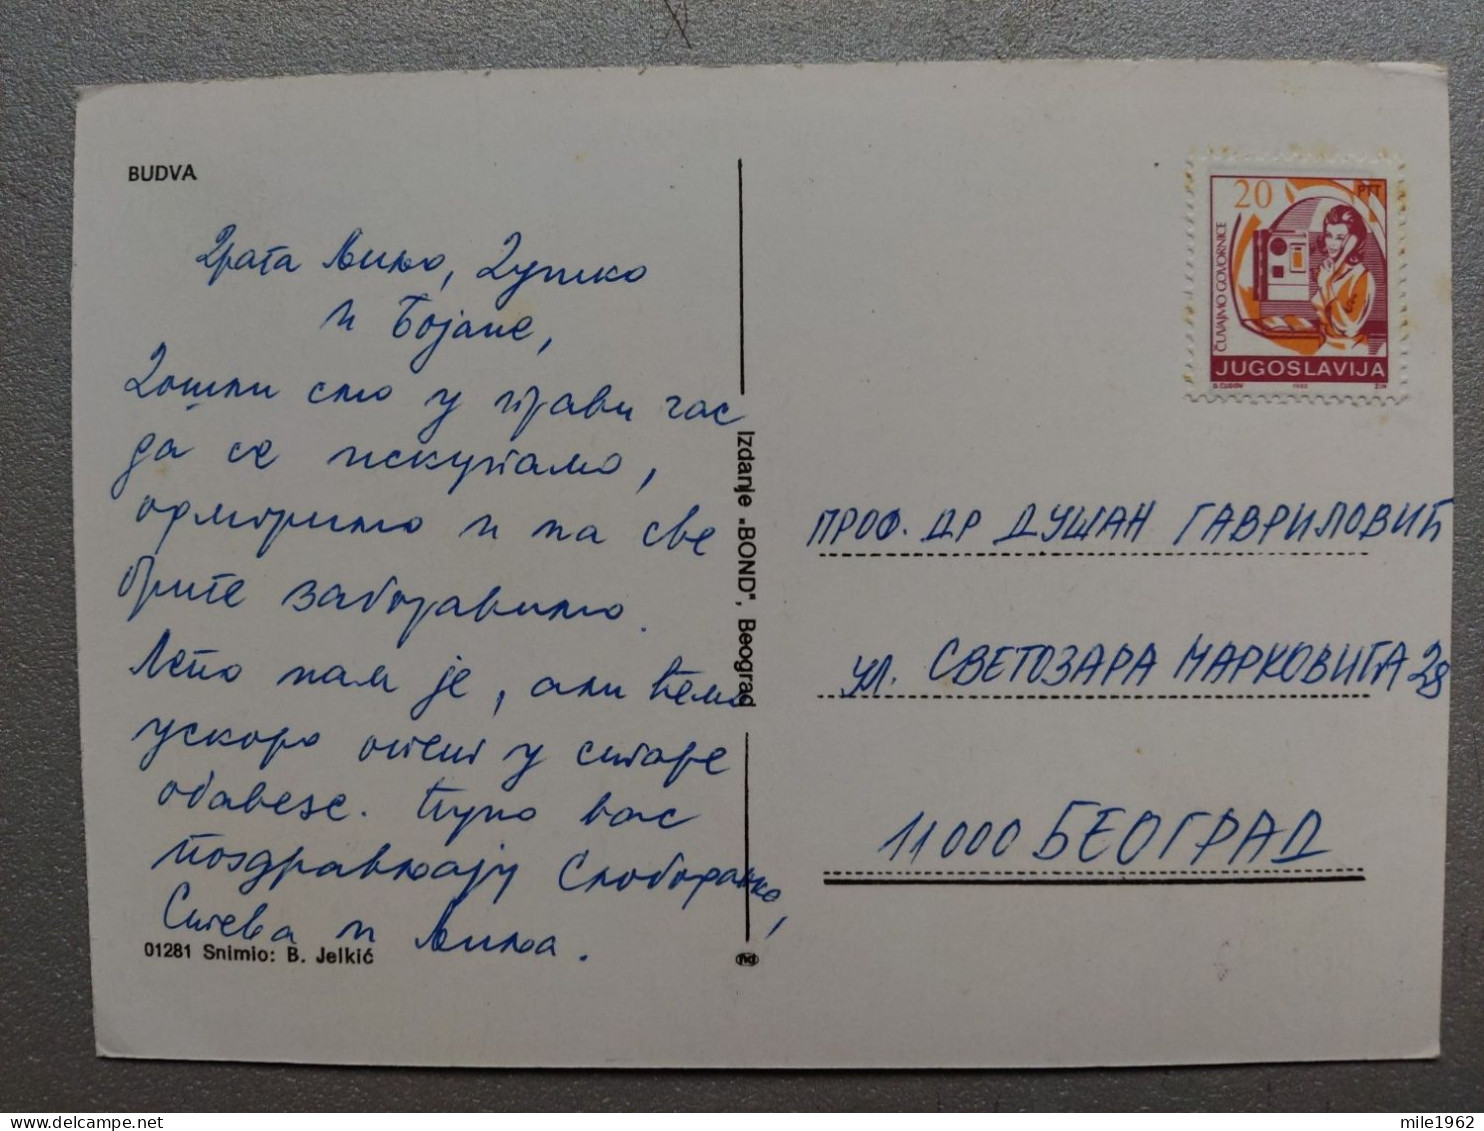 BUDVA
Драга Љиљо, Душко
и Бојане,
Дошли смо у прави час
да се искупамо,
одморимо и на све
бриге заборавимо.
Лепо нам је, али ћемо
ускоро опет у старе
обавезе. Пуно вас
поздрављају Слободанка,
Стева и Љиља.
01281 Snimio: B. Jelkić
Izdanje "BOND", Beograd
20
PTT
ČUVAJMO GOVORNICE
JUGOSLAVIJA
ПРОФ. ДР ДУШАН ГАВРИЛОВИЋ
УЛ. СВЕТОЗАРА МАРКОВИЋА 28
11000 БЕОГРАД
mile1962